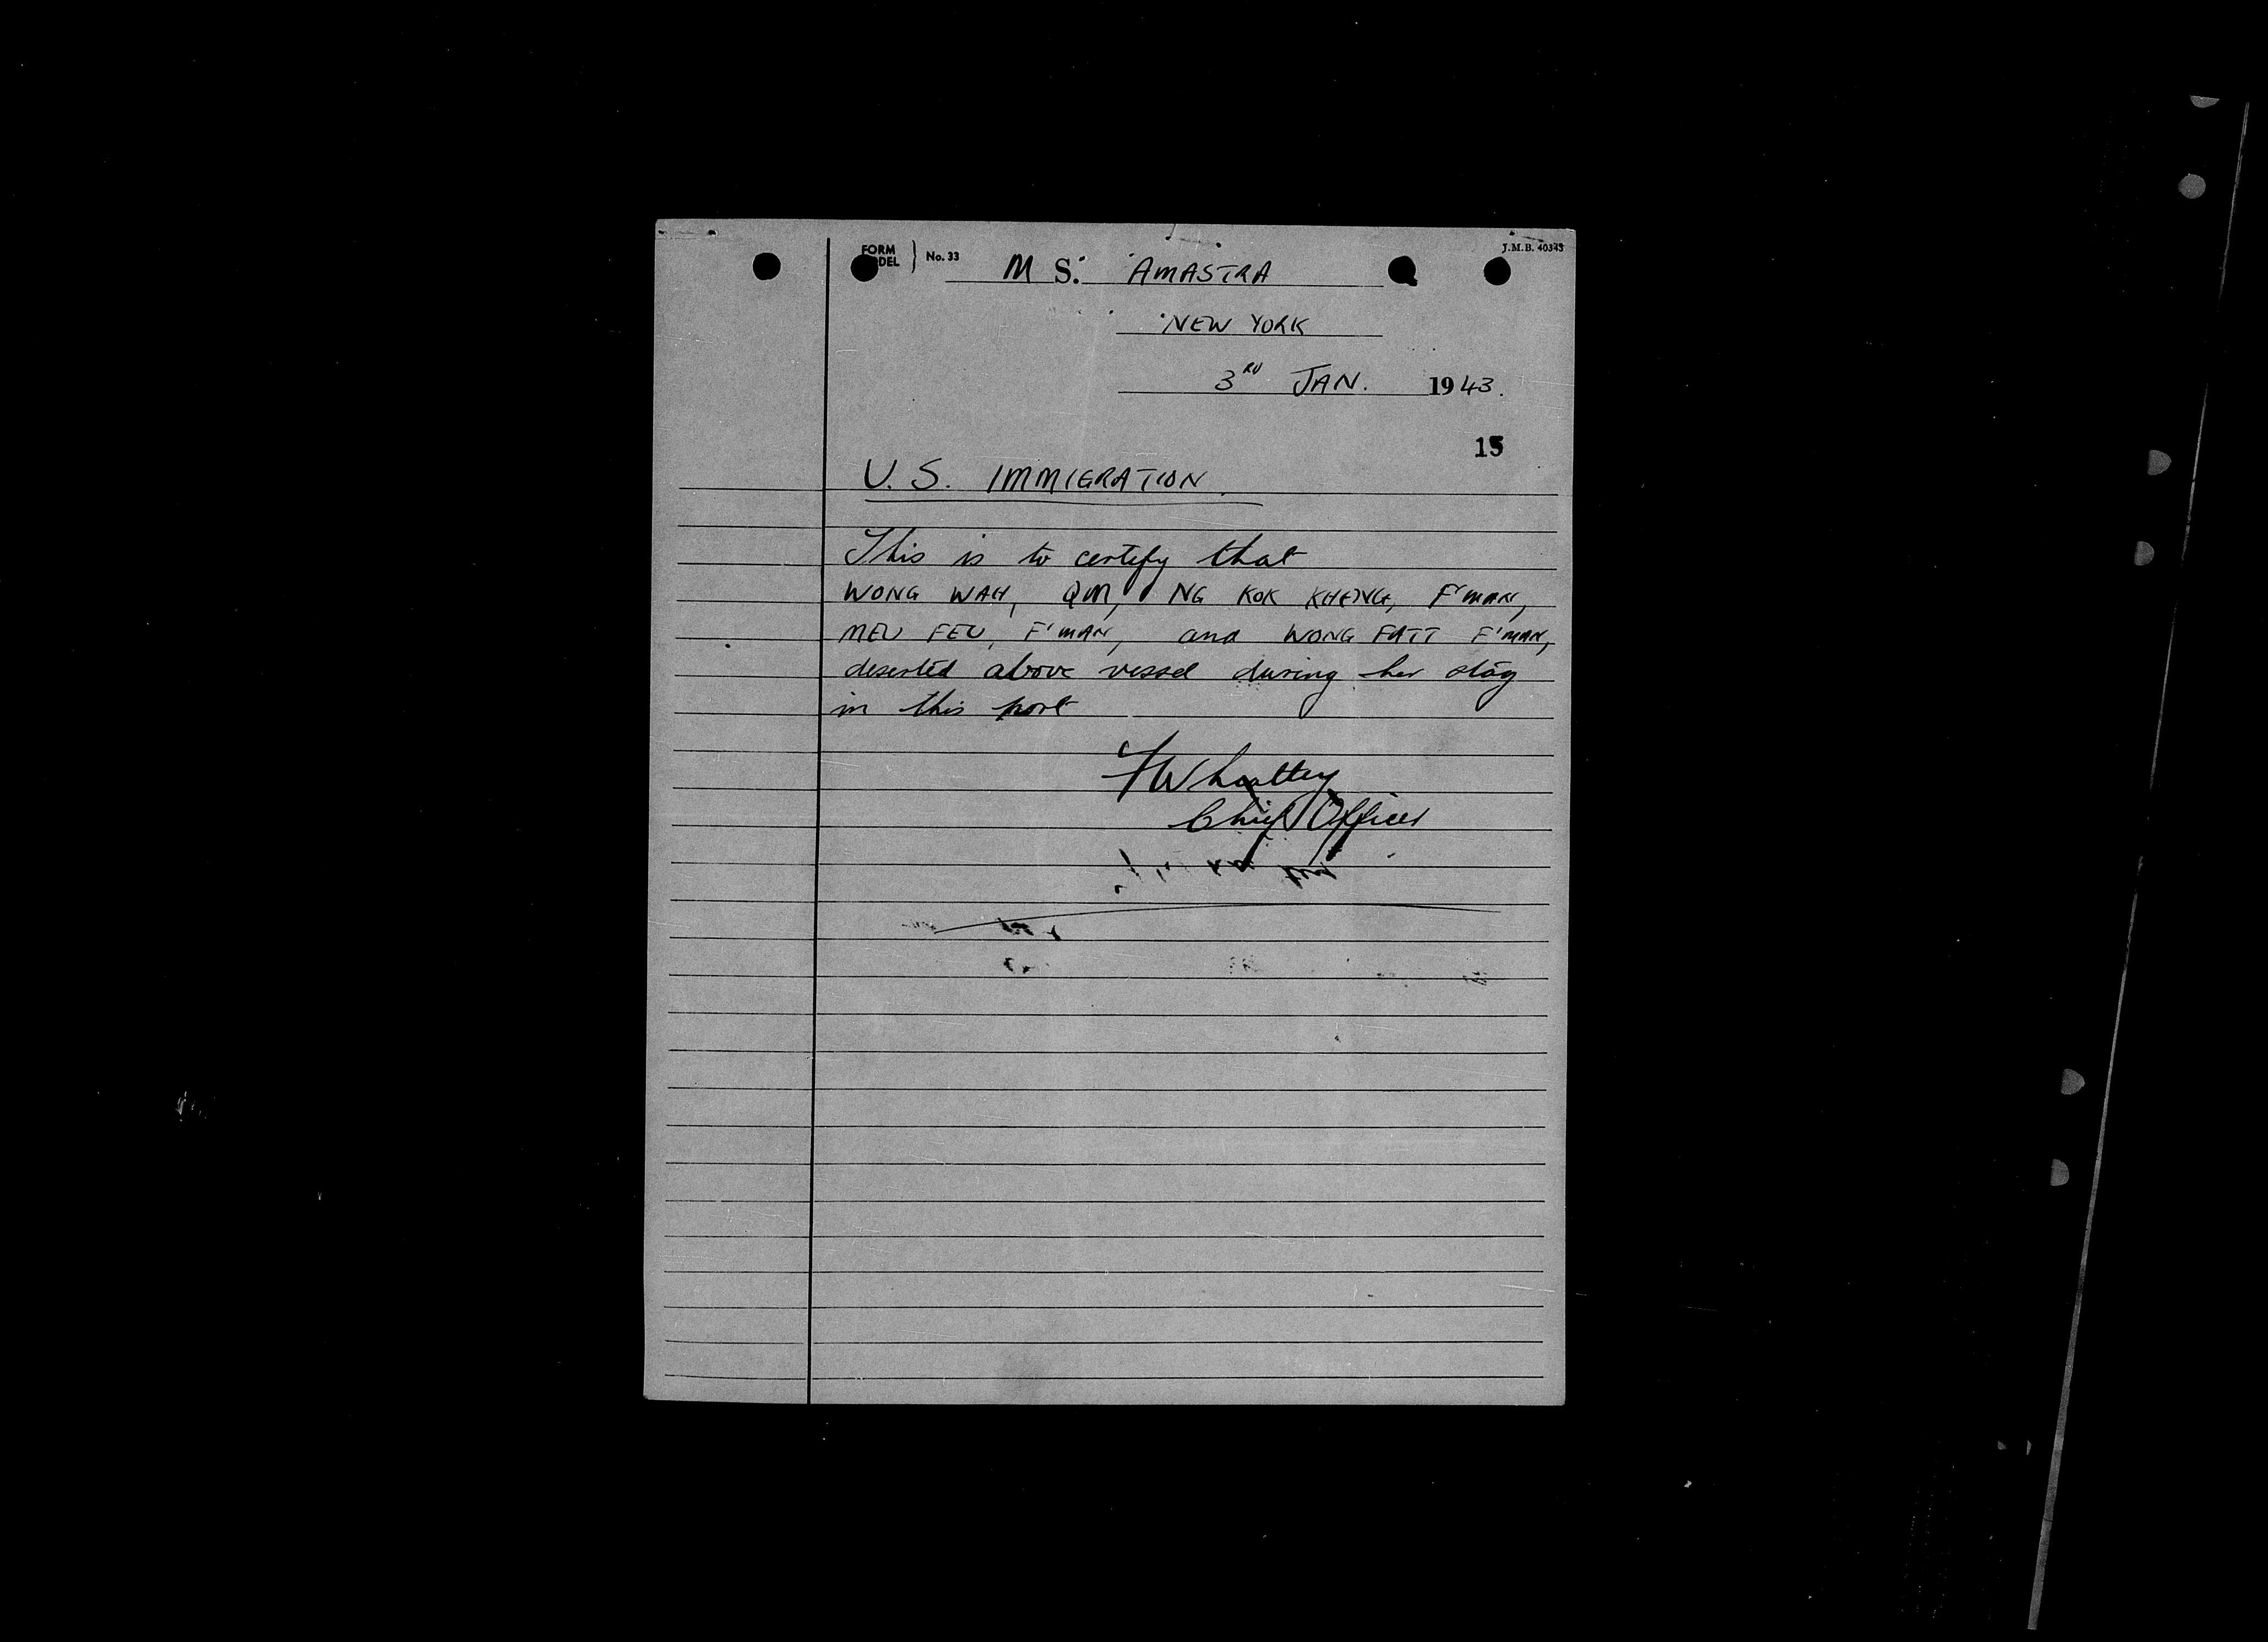 FORM No. 33
J.M.B. 40343
M S. AMASTRA
NEW YORK
3RD JAN. 1943.
15
U. S. IMMIGRATION.
This is to certify that
WONG WAH, QM, NG KOK KHENG, F'MAN,
MEU FEU, F'MAN, and WONG FATT F'MAN,
deserted above vessel during her stay
in this port
Chief Officer